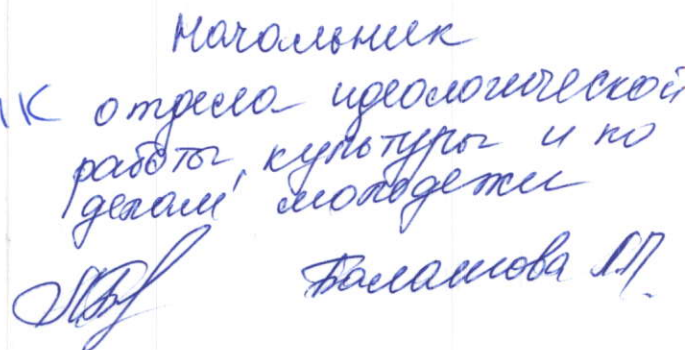 Начальник
отдела идеологической
работы, культуры и по
делам молодежи
Балашова Л.П.